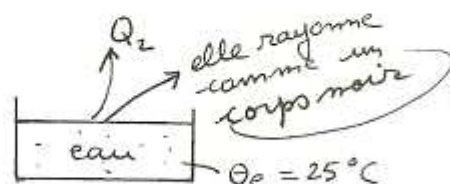 Q₂
elle rayonne
comme un
corps noir
eau
θe = 25°C